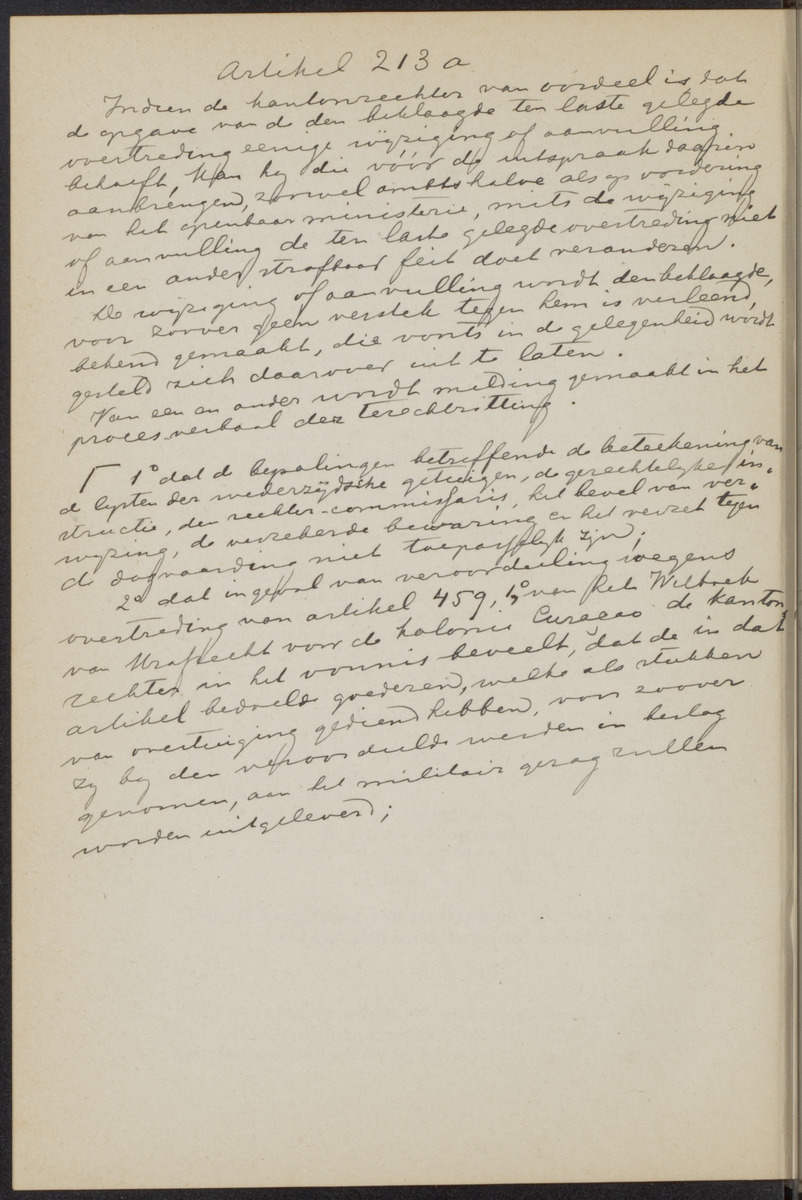 Artikel 213 a
Indien de kantonrechter van oordeel is, dat
de opgave van de den beklaagde ten laste gelegde
overtreding eenige wijziging of aanvulling
behoeft, kan hij die vóór de uitspraak daarin
aanbrengen, zoowel ambtshalve als op vordering
van het openbaar ministerie, mits de wijziging
of aanvulling de ten laste gelegde overtreding niet
in een ander strafbaar feit doet veranderen.
De wijziging of aanvulling wordt den beklaagde,
voor zoover geen verstek tegen hem is verleend,
bekend gemaakt, die voorts in de gelegenheid wordt
gesteld zich daarover uit te laten.
Van een en ander wordt melding gemaakt in het
proces-verbaal der terechtzitting.
⌈ 1° dat de bepalingen betreffende de beteekening van
de lijsten der wederzijdsche getuigen, de gerechtelijke in-
structie, den rechter-commissaris, het bevel van ver-
wijzing, de verzekerde bewaring en het verzet tegen
de dagvaarding niet toepasselijk zijn;
2° dat ingeval van veroordeeling wegens
overtreding van artikel 459, 1° van het Wetboek
van Strafrecht voor de kolonie Curaçao de kanton-
rechter in het vonnis beveelt, dat de in dat
artikel bedoelde goederen, welke als stukken
van overtuiging gediend hebben, voor zoover
zij bij den veroordeelde werden in beslag
genomen, aan het militair gezag zullen
worden uitgeleverd;